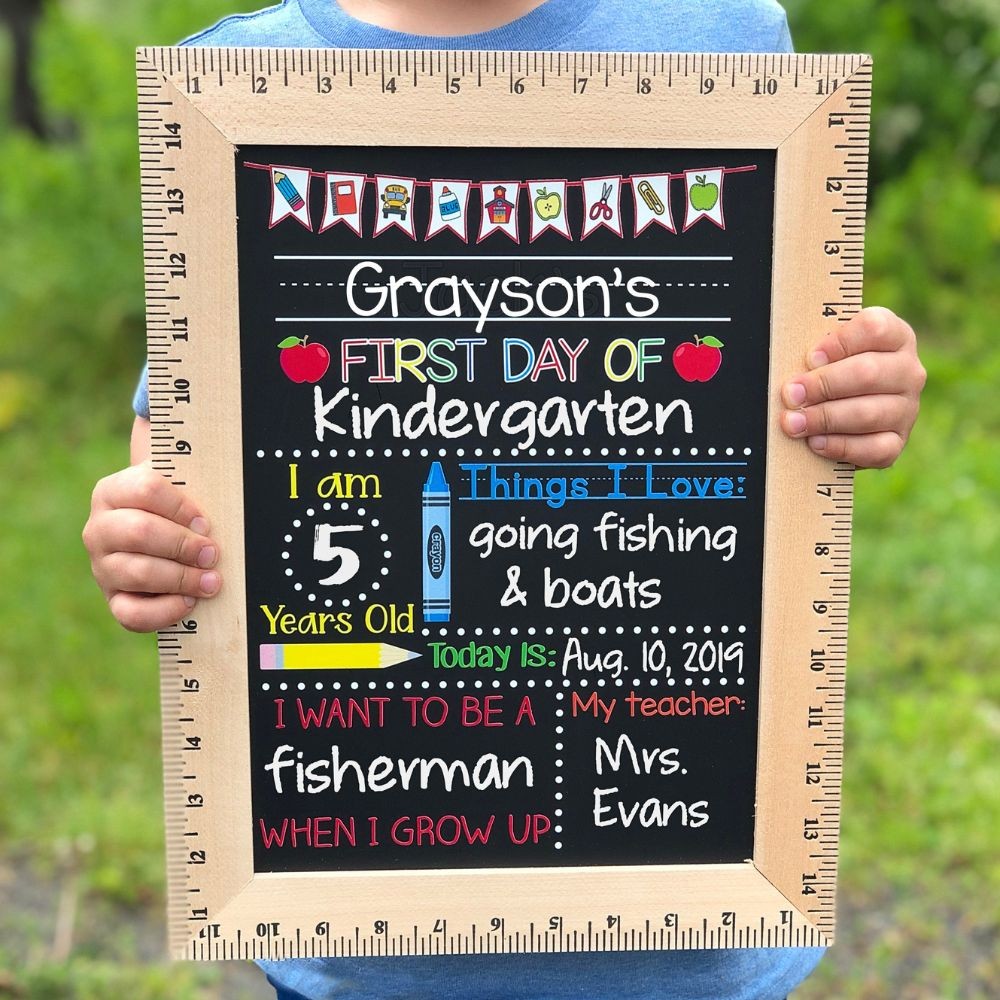 1 2 3 4 5 6 7 8 9 10 11
GLUE
Grayson's
FIRST DAY OF
Kindergarten
I am
5
Years Old
crayon
Things I Love:
going fishing
& boats
Today Is: Aug. 10, 2019
I WANT TO BE A
fisherman
WHEN I GROW UP
My teacher:
Mrs.
Evans
14 13 12 11 10 9 6 5 4 3 2 1
1 2 3 4 7 8 9 10 11 12 13 14
11 10 9 8 7 6 5 4 3 2 1